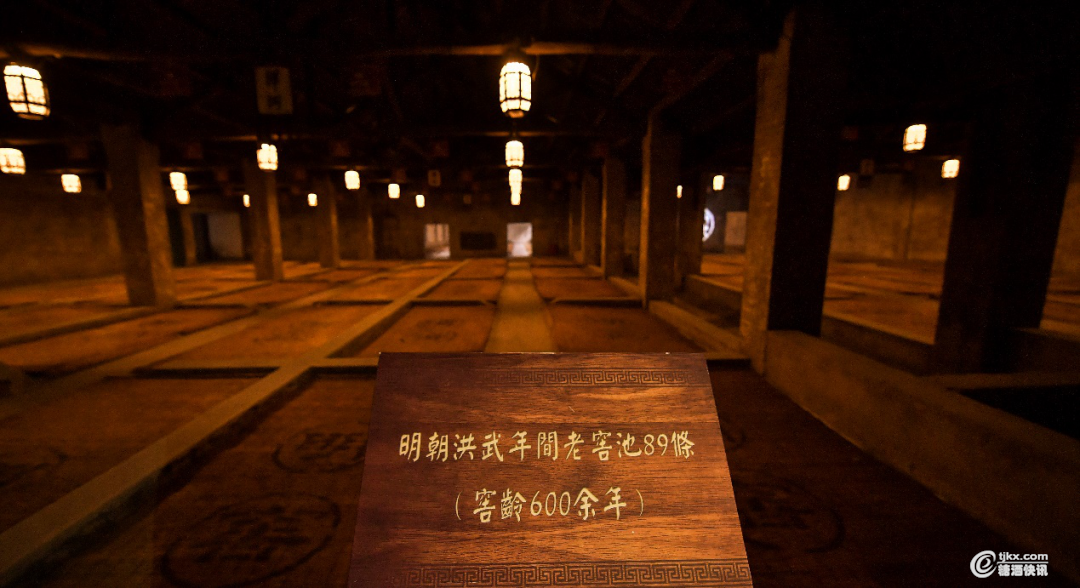 明朝洪武年間老窖池89條
（窖齡600余年）
tjkx.com
糖酒快讯